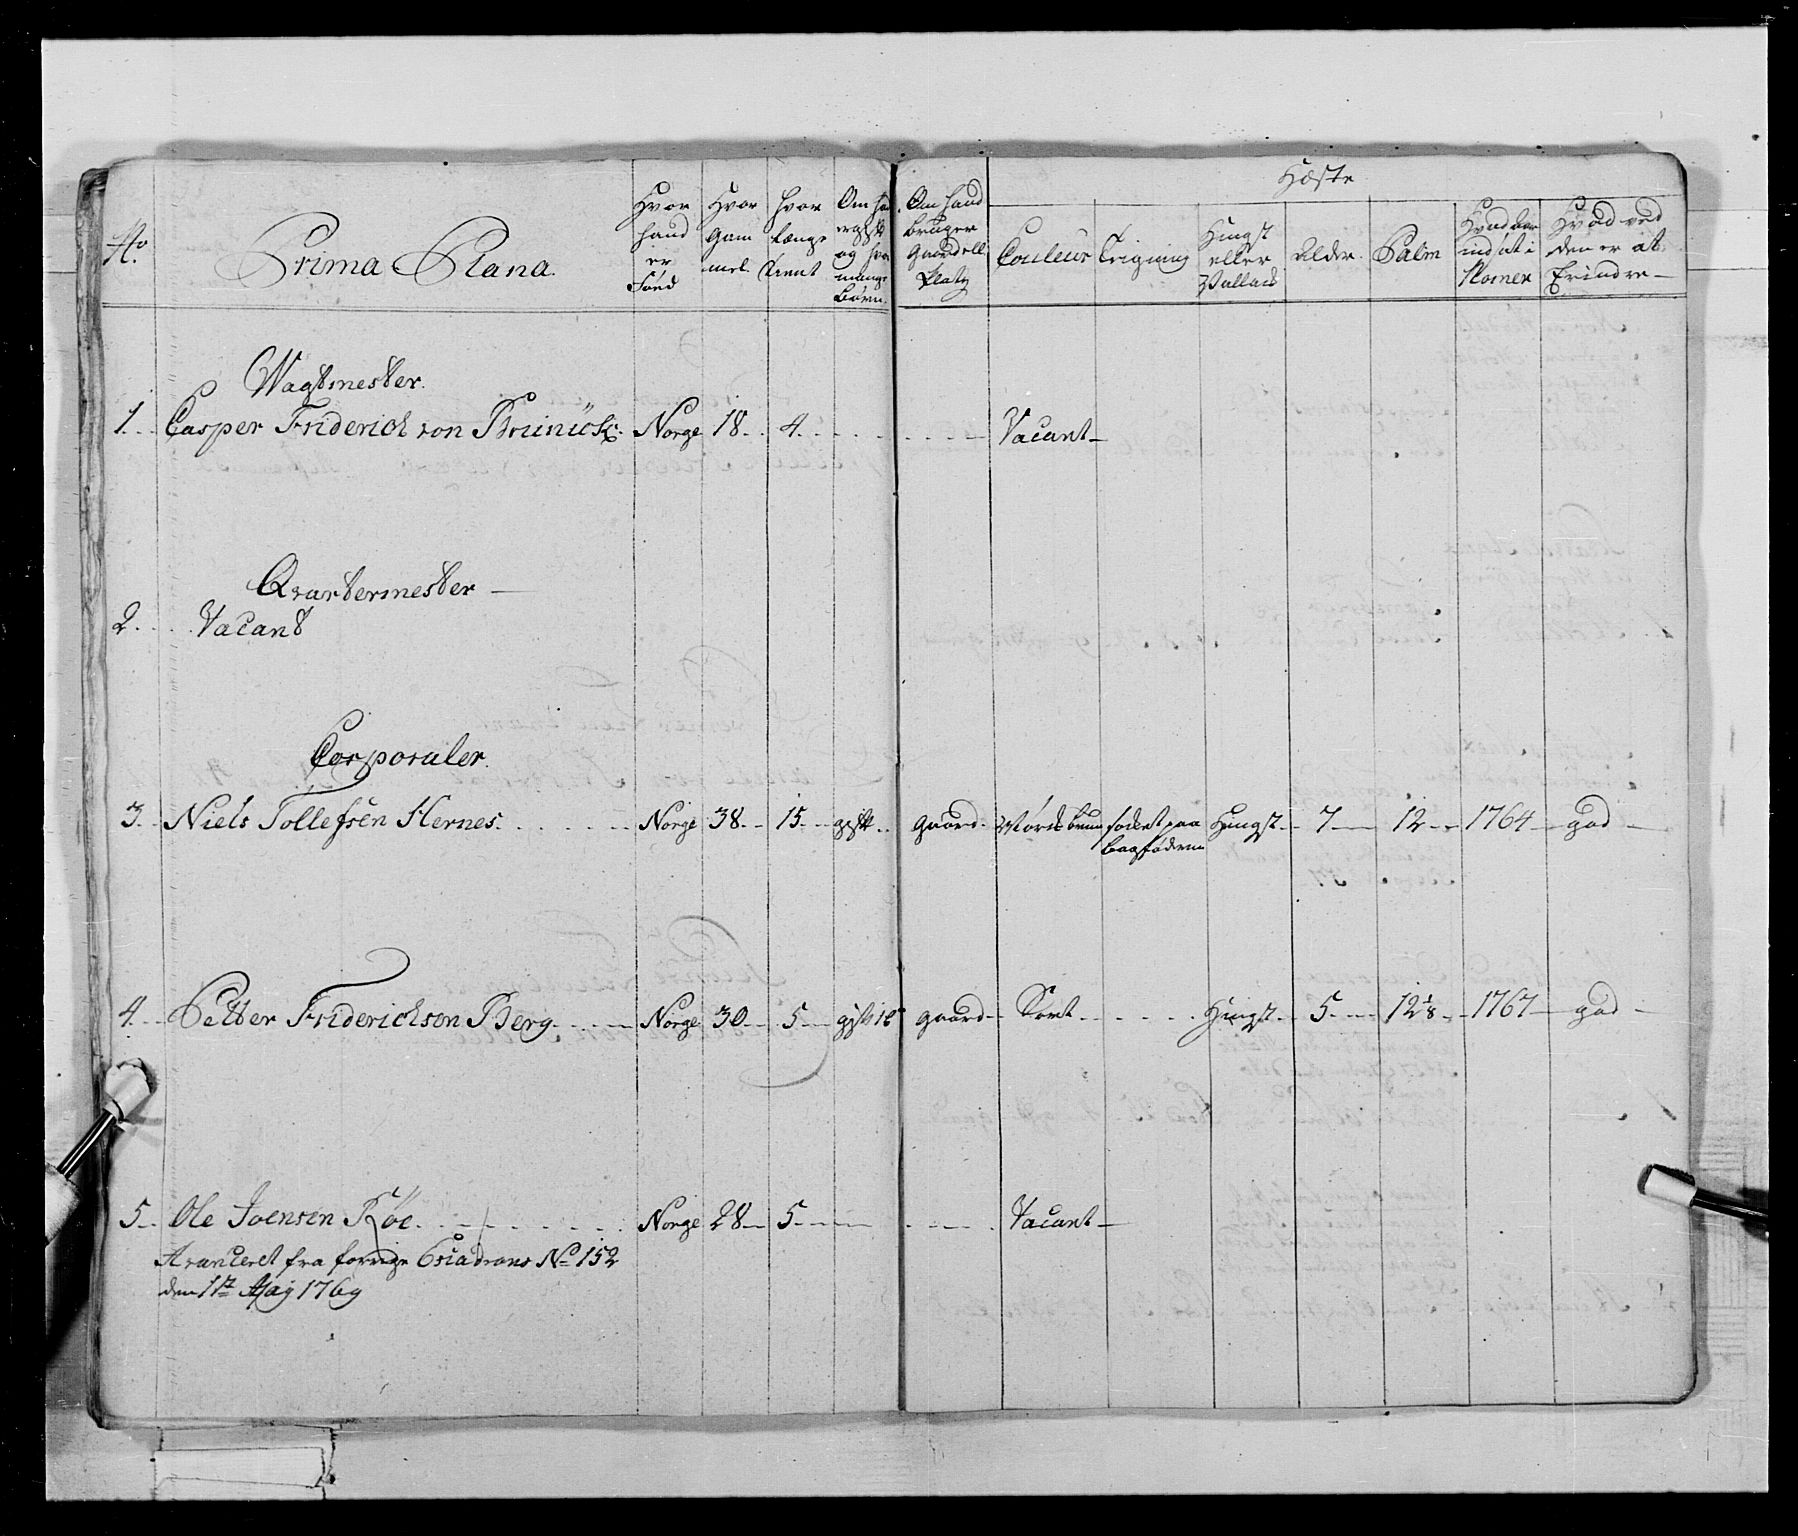 No.
Prima Plana.
Hvor
hand
er
föed
Hvor
Gam
mel.
hvor
længe
tient
Om ha
er gift
og hvor
mange
Børn.
Om hand
bruger
Gaard ell.
Platz
Hæste
Couleur
Teigning
Hingst
eller
Vallack
alder.
Palm
Hvad Aar
indsat i
Nomer
Hvad ved
den er at
Erindre
Wagtmester.
1. Casper Friderich von Brünick Norge 18 4 Vacant
Qvartermester
2. Vacant
Corporaler.
3. Niels Tollefsen Hernes Norge 38 15 gift gaard Mörckbrun socket paa Hingst 7 12 1764 god
bagföderne
4. Petter Friderichson Berg Norge 30 5 gift gaard Sort Hingst 5 12 1/8 1767 god
5. Ole Joensen Röe Norge 28 5 Vacant
Avanceret fra forrige Escadrons No 152
den 1te Maj 1769